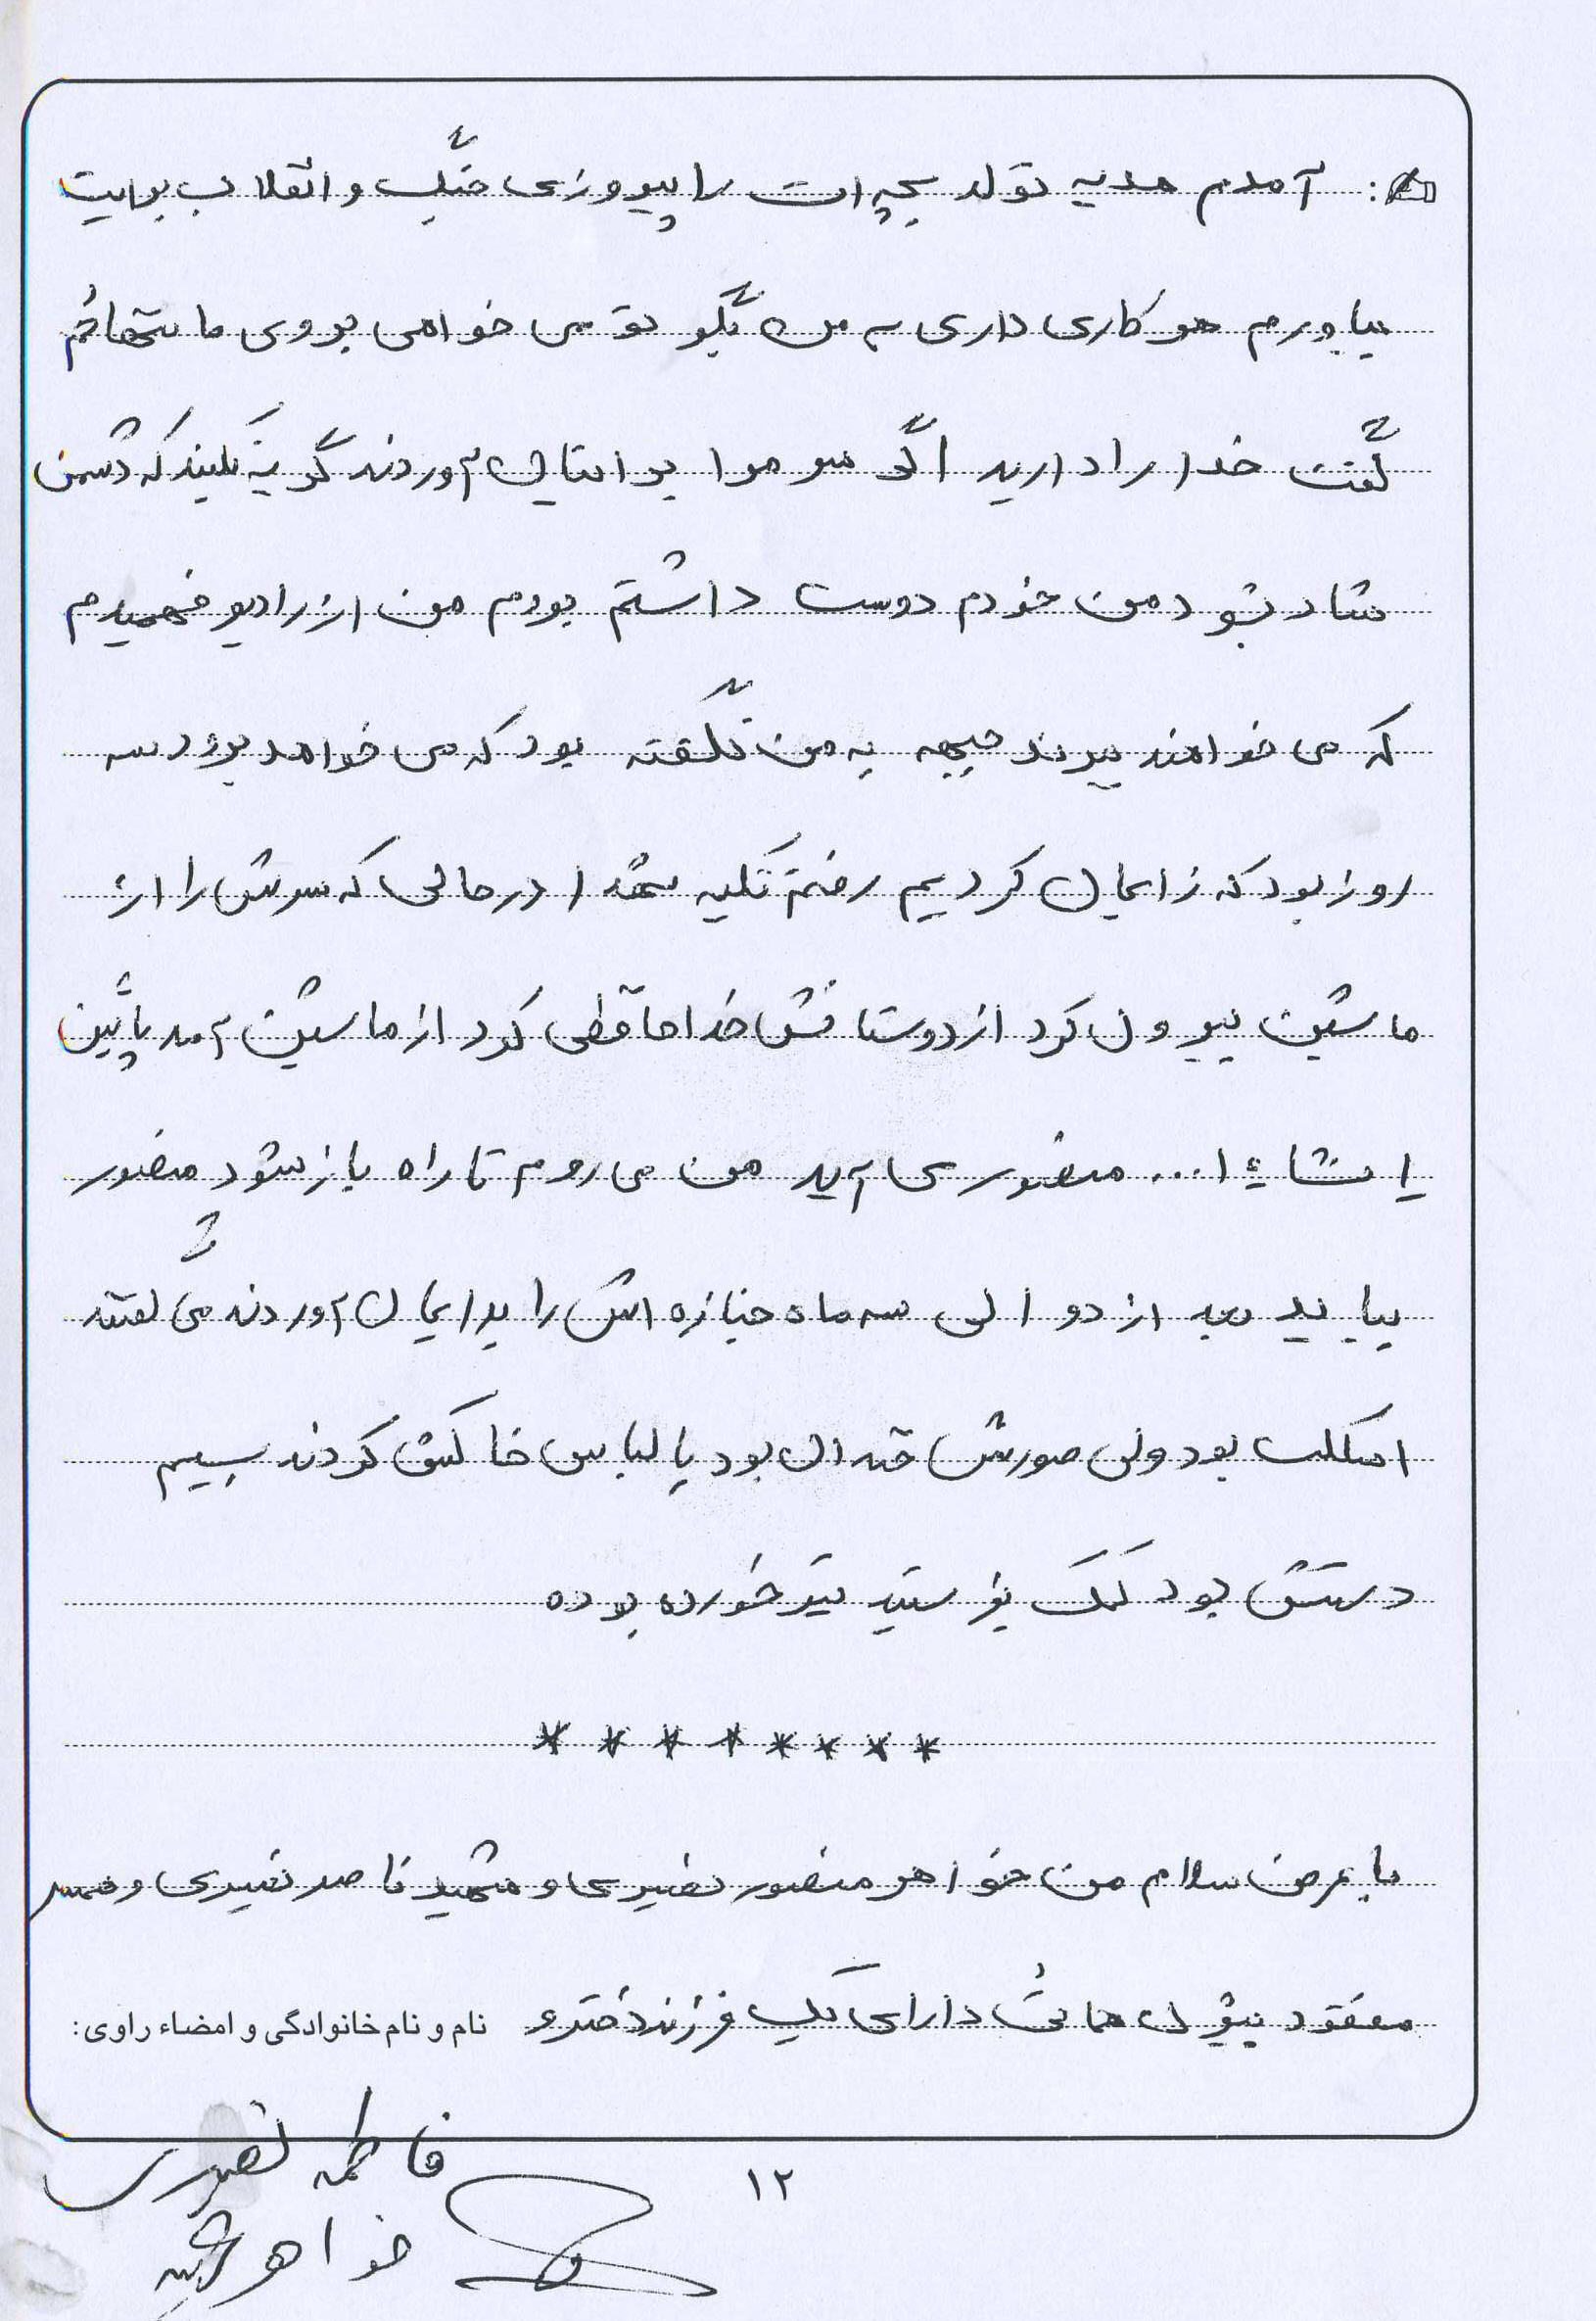 آمدم هدیه تولد بچه ات را پیروزی جنگ و انقلاب برایت
بیاورم هر کاری داری به من بگو تو می خواهی بروی ما تنهائم
گفت خدا را دارید اگر سر مرا برایتان آوردند گریه نکنید که دشمن
شاد نشود من خودم دوست داشتم بروم من از رادیو فهمیدم
که می خواهند ببرند جبهه به من نگفته بود که می خواهد برود سه
روز بود که زایمان کردیم رفتم تکیه شهدا در حالی که سرش را از
ماشین بیرون کرد از دوستانش خداحافظی کرد از ماشین آمد پائین
إنشاءا... منصور می آید من می روم تا راه باز شود منصور
بیاید بعد از دو الی سه ماه جنازه اش را برایمان آوردند می گفتند
اسکلت بود ولی صورتش خندان بود با لباس خاکش کردند بیسیم
دستش بود کمک بفرستید تیر خورده بوده
* * * * * * * *
با عرض سلام من خواهر منصور نصیری و شهید ناصر نصیری و همسر
مفقود بیژن دارای یک فرزند دختر و
نام و نام خانوادگی و امضاء راوی:
فاطمه نصیری
۱۲
خواهر شهید